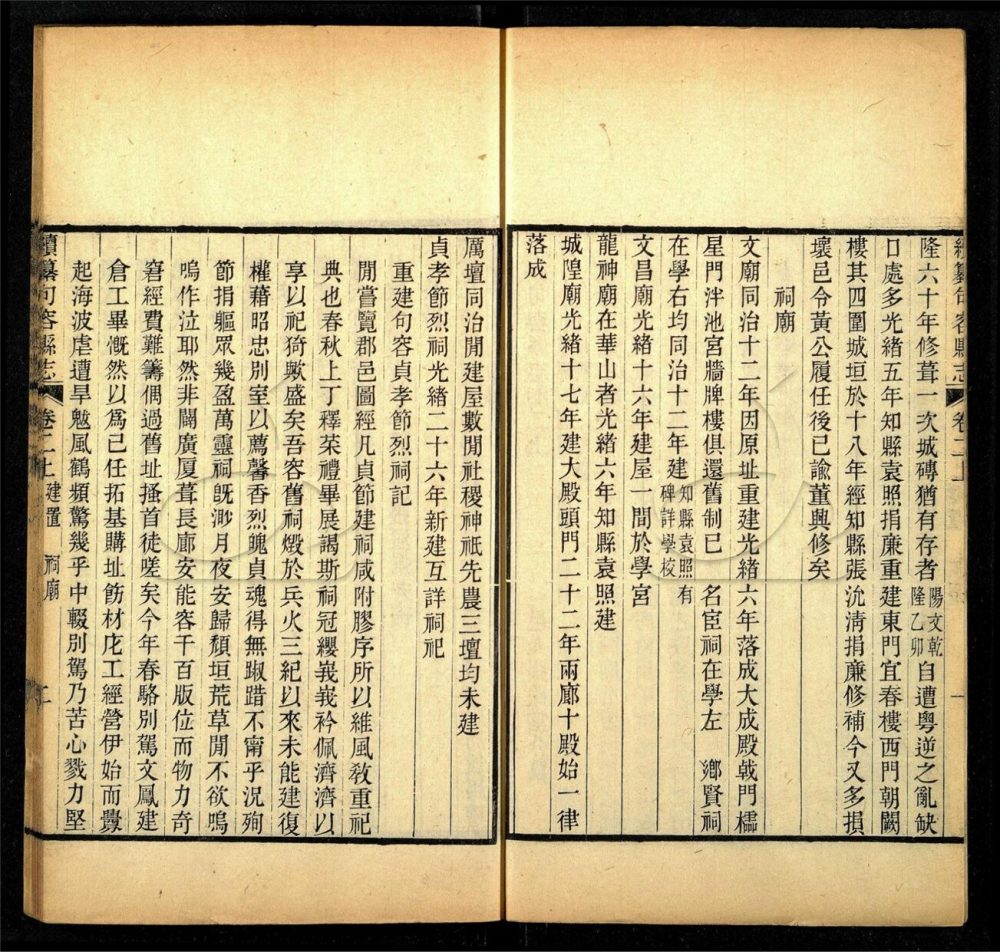 續纂句容縣志 卷二上 一
隆六十年修葺一次城磚猶有存者陽文乾隆乙卯自遭粵逆之亂缺
口處多光緒五年知縣袁照捐廉重建東門宜春樓西門朝闕
樓其四圍城垣於十八年經知縣張沇淸捐廉修補今又多損
壞邑令黃公履任後已諭董興修矣
祠廟
文廟同治十二年因原址重建光緒六年落成大成殿戟門櫺
星門泮池宮牆牌樓俱還舊制已 名宦祠在學左 鄉賢祠
在學右均同治十二年建知縣袁照有碑詳學校
文昌廟光緒十六年建屋一間於學宮
龍神廟在華山者光緒六年知縣袁照建
城隍廟光緒十七年建大殿頭門二十二年兩廊十殿始一律
落成
厲壇同治閒建屋數閒社稷神祇先農三壇均未建
貞孝節烈祠光緒二十六年新建互詳祠祀
重建句容貞孝節烈祠記
閒嘗覽郡邑圖經凡貞節建祠咸附膠序所以維風敎重祀
典也春秋上丁釋菜禮畢展謁斯祠冠纓峩峩衿佩濟濟以
享以祀猗歟盛矣吾容舊祠燬於兵火三紀以來未能建復
權藉昭忠別室以薦馨香烈魄貞魂得無踧踖不甯乎況殉
節捐軀眾幾盈萬靈祠旣渺月夜安歸頹垣荒草閒不欲嗚
嗚作泣耶然非闢廣厦葺長廊安能容千百版位而物力奇
窘經費難籌偶過舊址搔首徒嗟矣今年春駱別駕文鳳建
倉工畢慨然以爲己任拓基購址飭材庀工經營伊始而釁
起海波虐遭旱魃風鶴頻驚幾乎中輟別駕乃苦心戮力堅
續纂句容縣志 卷二上 建置 祠廟 二